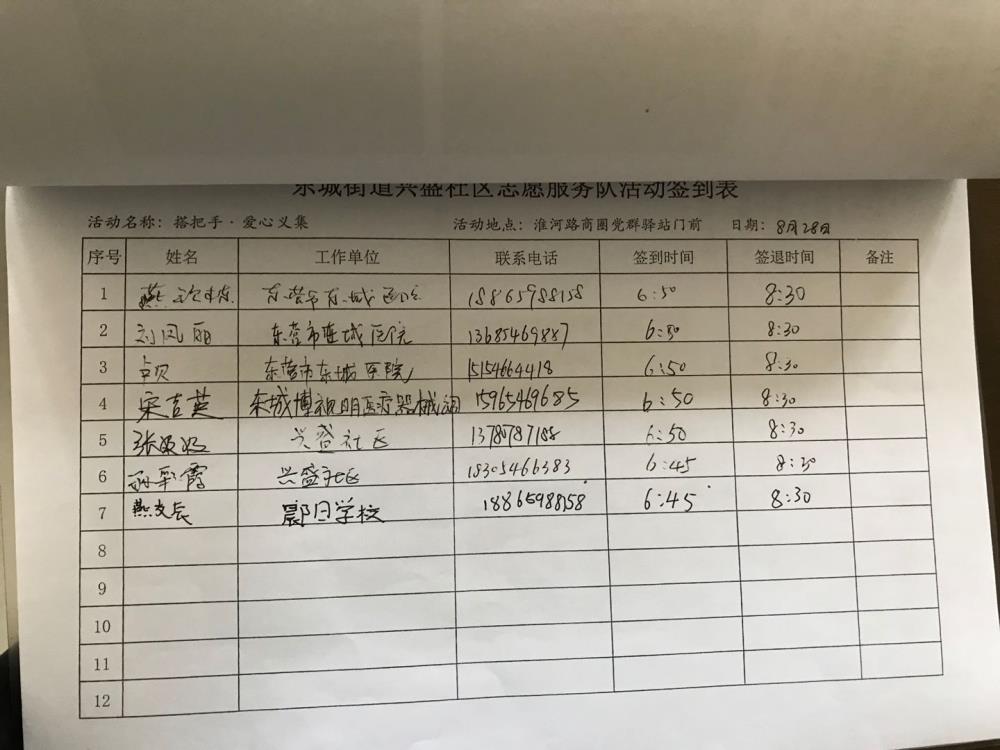 东城街道兴盛社区志愿服务队活动签到表
活动名称：搭把手·爱心义集 活动地点：淮河路商圈党群驿站门前 日期：8月28日
序号 姓名 工作单位 联系电话 签到时间 签退时间 备注
1 燕 东营市东城医院 18865988158 6:50 8:30
2 刘凤丽 东营市东城医院 13685469887 6:50 8:30
3 卓贝 东营市东城医院 15154664418 6:50 8:30
4 宋吉英 东城博视明医疗器械 15965469685 6:50 8:30
5 张 兴盛社区 6:50 8:30
6 彩霞 兴盛社区 18305466383 6:45 8:30
7 燕友辰 学校 18865988158 6:45 8:30
8
9
10
11
12